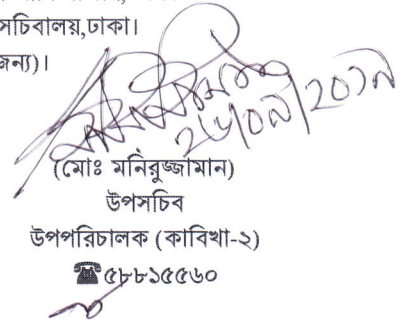 সচিবালয়,ঢাকা।
জন্য)।
২৬/০৯/২০১৯
(মোঃ মনিরুজ্জামান)
উপসচিব
উপপরিচালক (কাবিখা-২)
☎৫৮৮১৫৫৬০